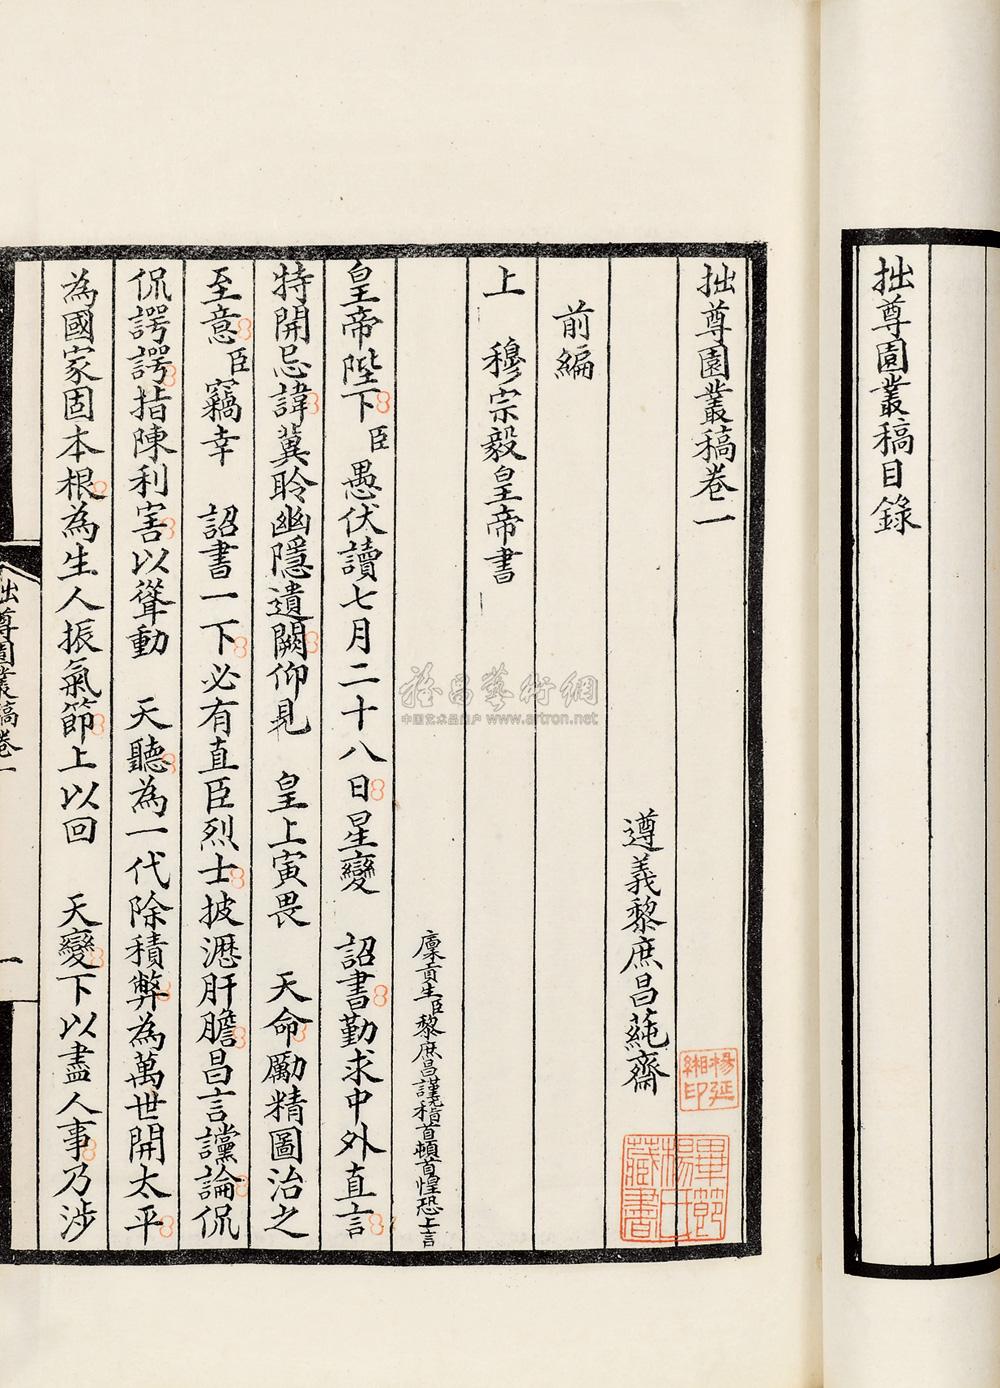 拙尊園叢稿目錄
拙尊園叢稿卷一
遵義黎庶昌蒓齋
前編
上　穆宗毅皇帝書
廩貢生臣黎庶昌謹稽首頓首惶恐上言
皇帝陛下臣愚伏讀七月二十八日星變　詔書勤求中外直言
特開忌諱冀聆幽隱遺闕仰見　皇上寅畏　天命勵精圖治之
至意臣竊幸　詔書一下必有直臣烈士披瀝肝膽昌言讜論侃
侃諤諤指陳利害以聳動　天聽為一代除積弊為萬世開太平
為國家固本根為生人振氣節上以回　天變下以盡人事乃涉
拙尊園叢稿卷一
一
楊延
緗印
畢節
楊氏
藏書
雅昌藝術網
中国艺术品门户 www.artron.net